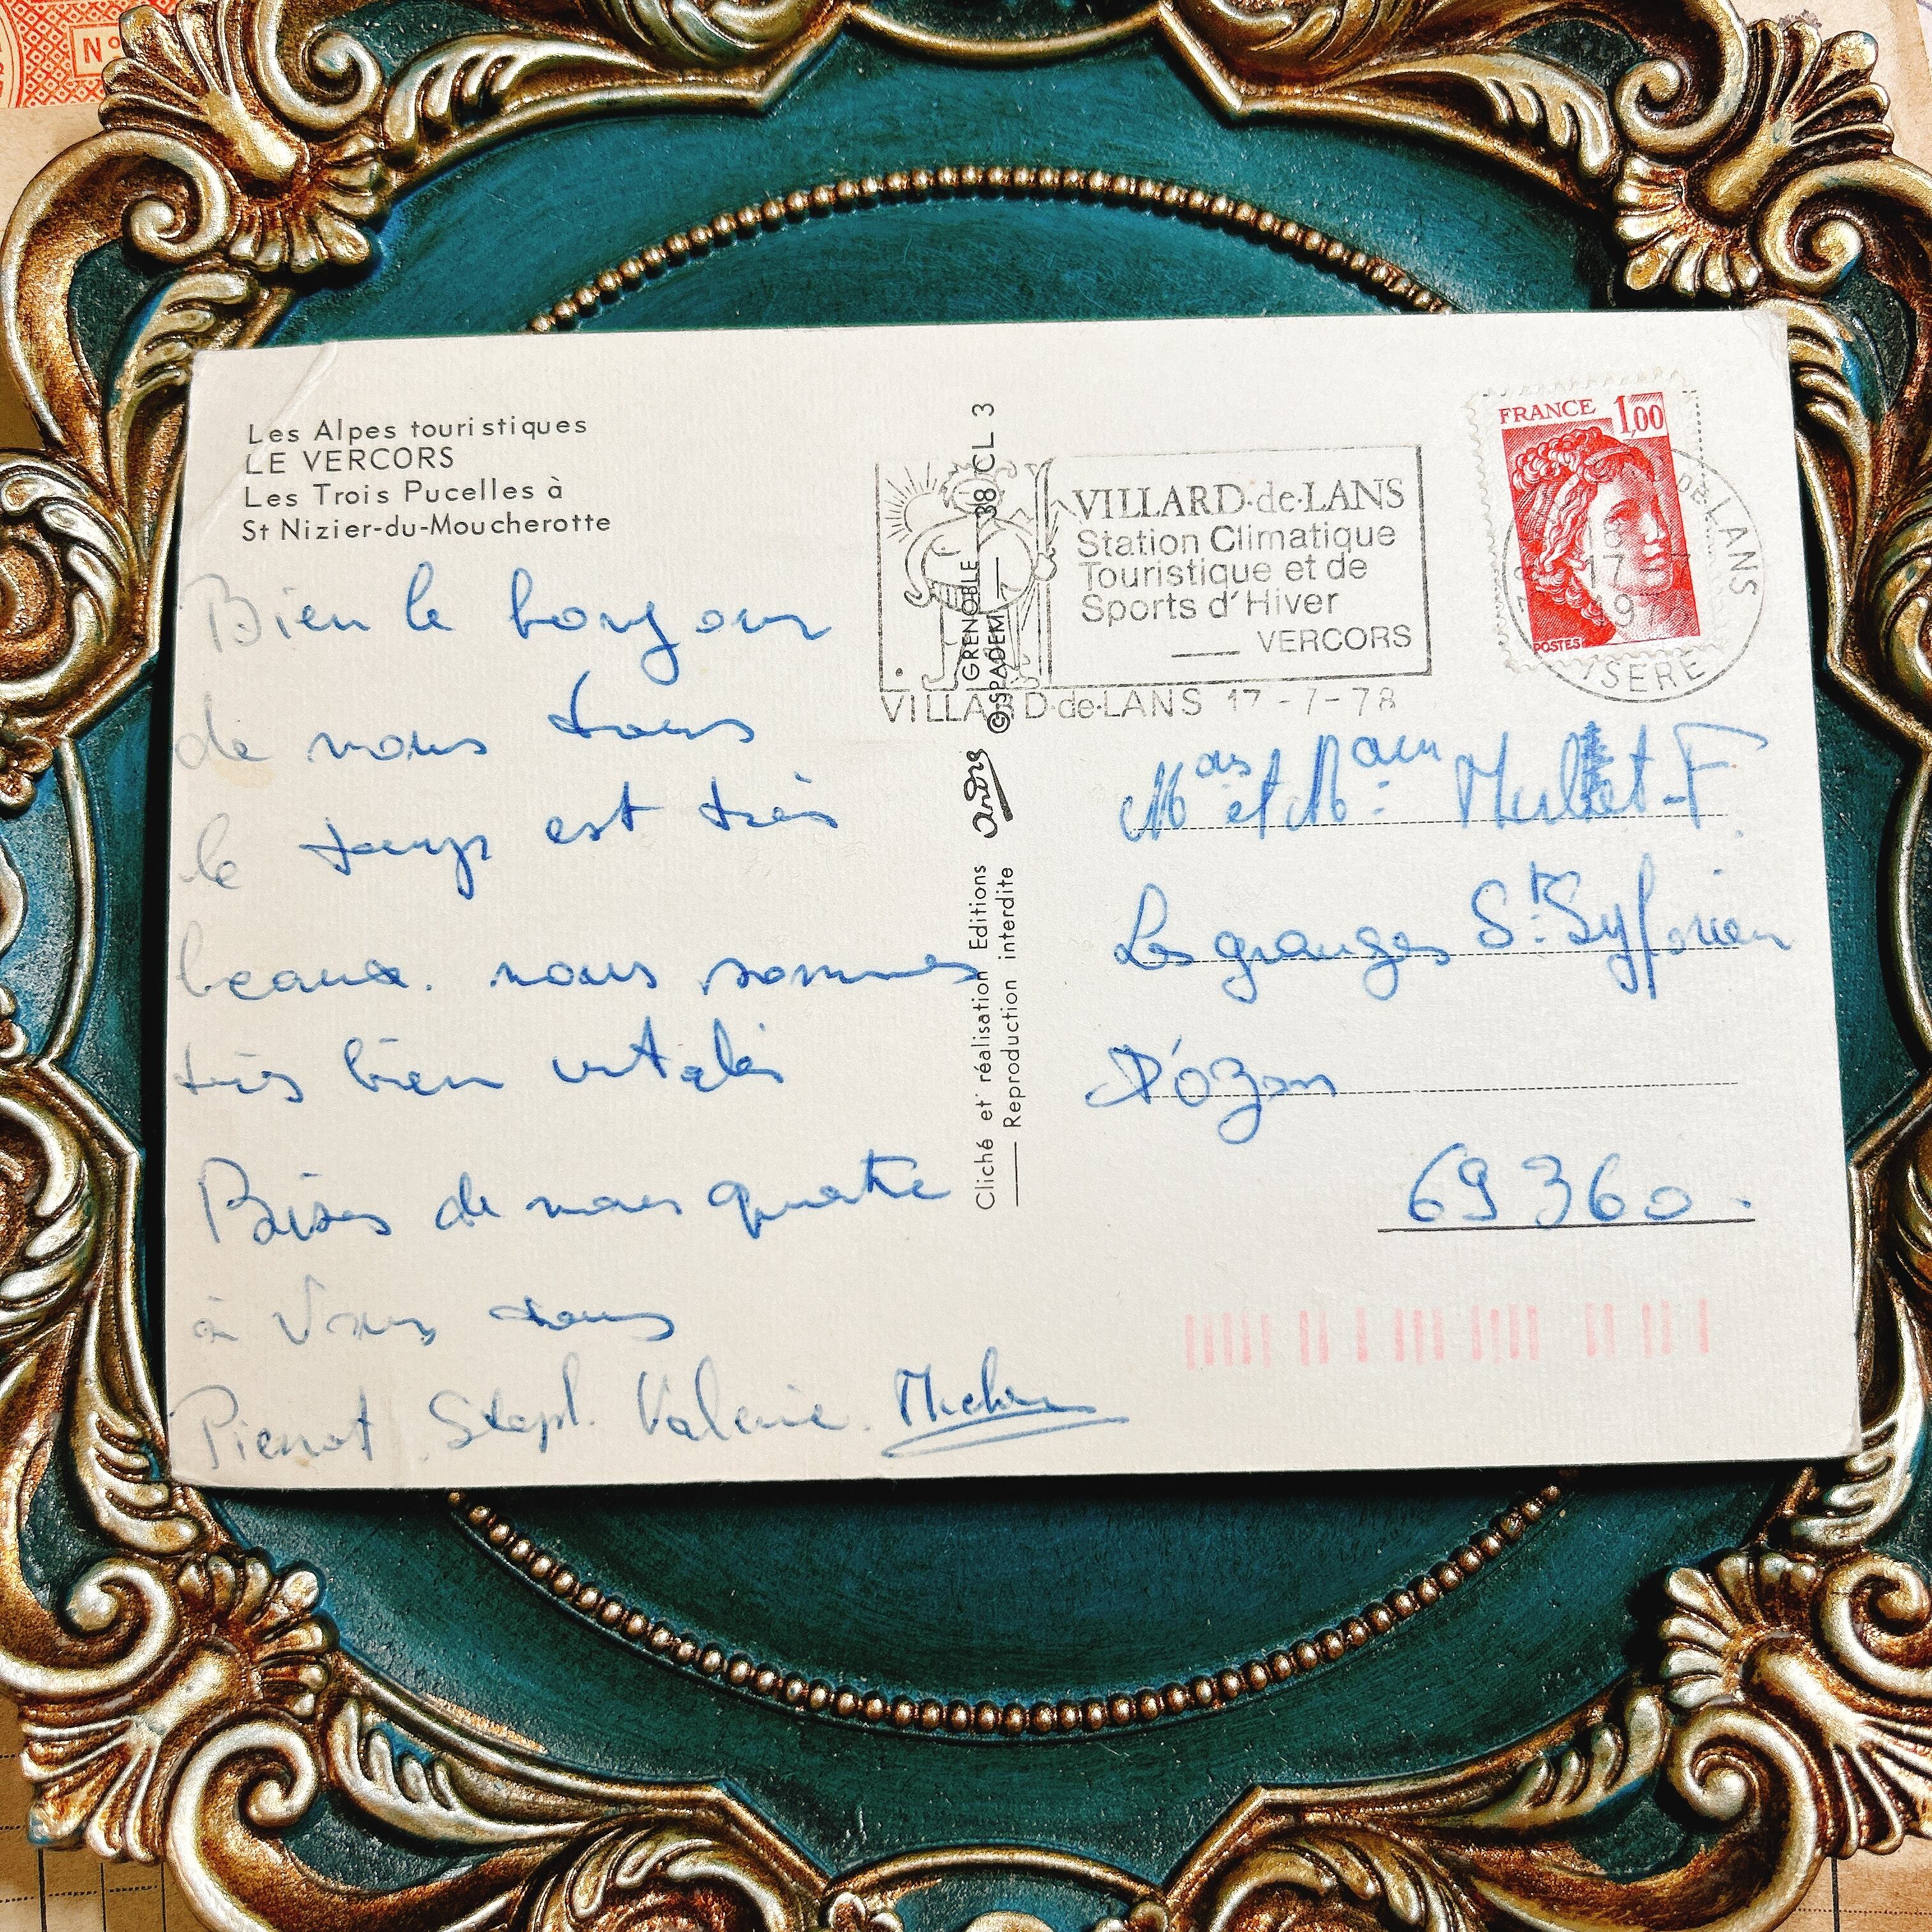 N°
Les Alpes touristiques
LE VERCORS
Les Trois Pucelles à
St Nizier-du-Moucherotte
Bien le bonjour
de nous tous
le temps est très
beaux. nous sommes
très bien
Bises de nous quatre
à Vous tous
Pierrot. Steph. Valerie.
Cliché et réalisation Editions André GRENOBLE 38 CL 3
Reproduction interdite ©SPADEM
VILLARD-de-LANS
Station Climatique
Touristique et de
Sports d'Hiver
VERCORS
VILLARD-de-LANS 17-7-78
FRANCE 1,00
POSTES
DE LANS
17-7
19
ISERE
et
Les granges St. Syforien
D'Ozon
69360.